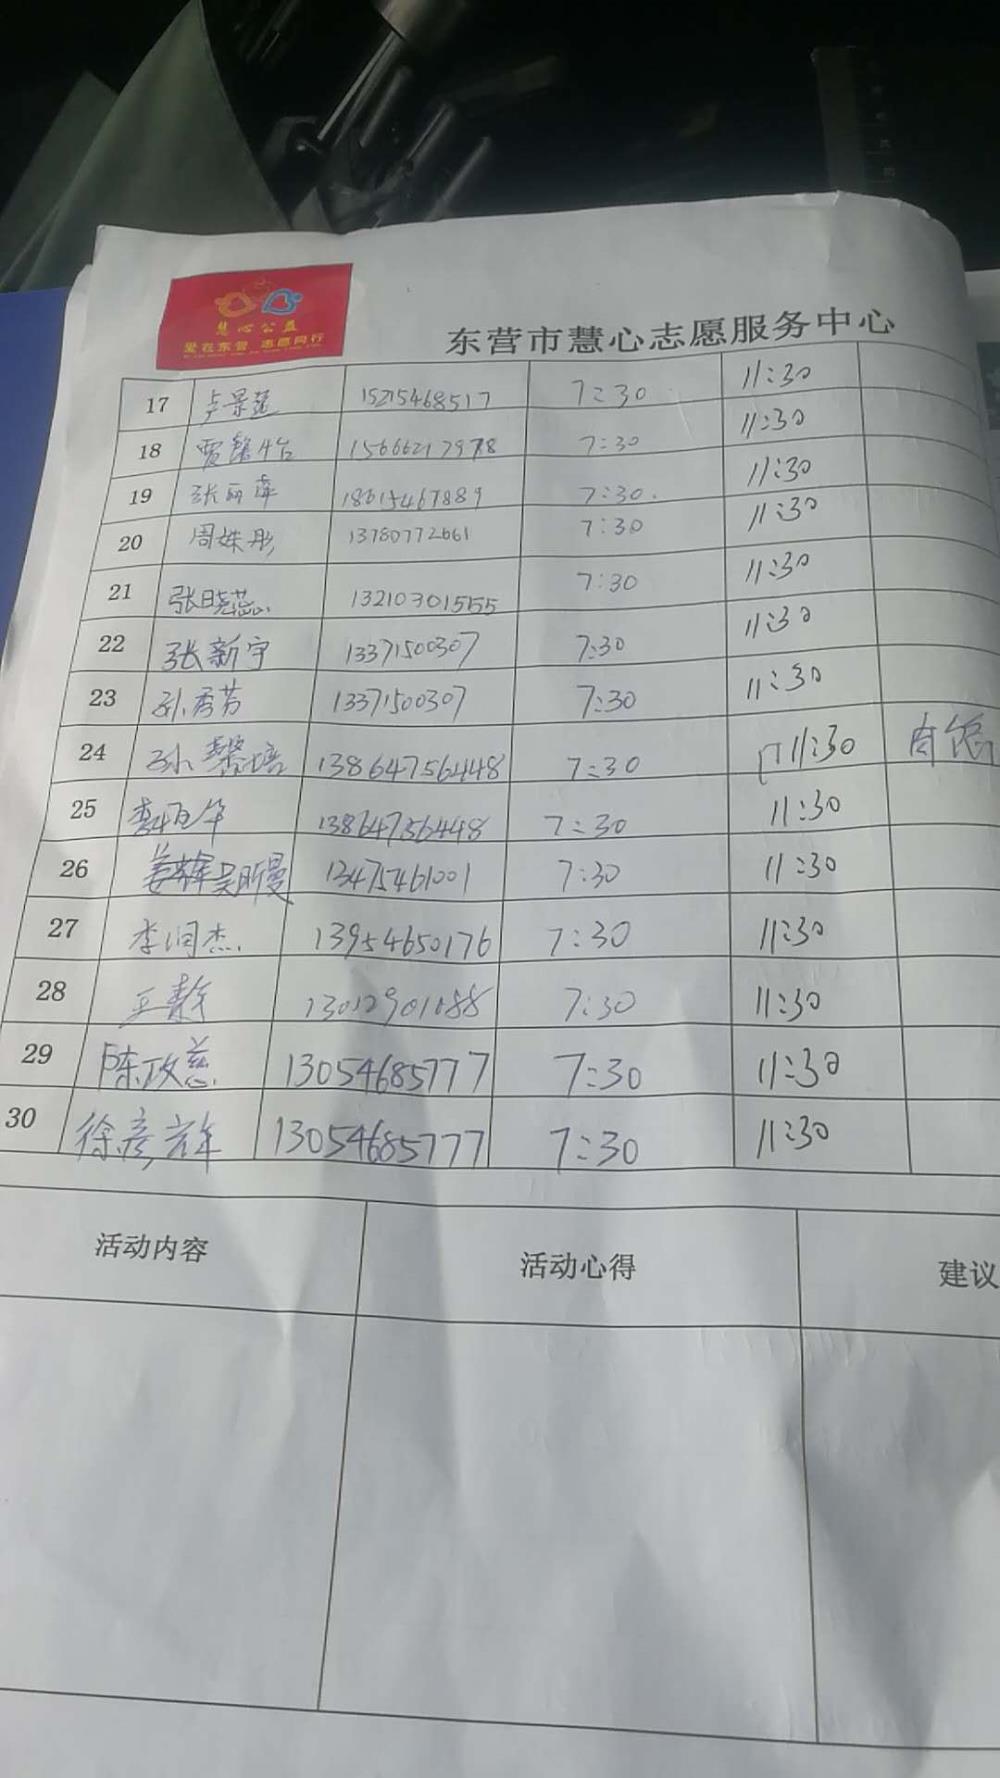 慧心公益
爱在东营 志愿同行
东营市慧心志愿服务中心
17 卢景 15215468517 7:30 11:30
18 贾馨 15666217978 7:30 11:30
19 张丽萍 18615467889 7:30 11:30
20 周姝彤 13780772661 7:30 11:30
21 张晓蕊 13210301555 7:30 11:30
22 张新宇 13371500307 7:30 11:30
23 孙秀芳 13371500307 7:30 11:30
24 孙馨培 13864756448 7:30 11:30
25 13864756448 7:30 11:30
26 吴昕曼 13475461001 7:30 11:30
27 李润杰 13954650176 7:30 11:30
28 王静 13012901088 7:30 11:30
29 陈政慈 13054685777 7:30 11:30
30 徐彦 13054685777 7:30 11:30
活动内容 活动心得 建议